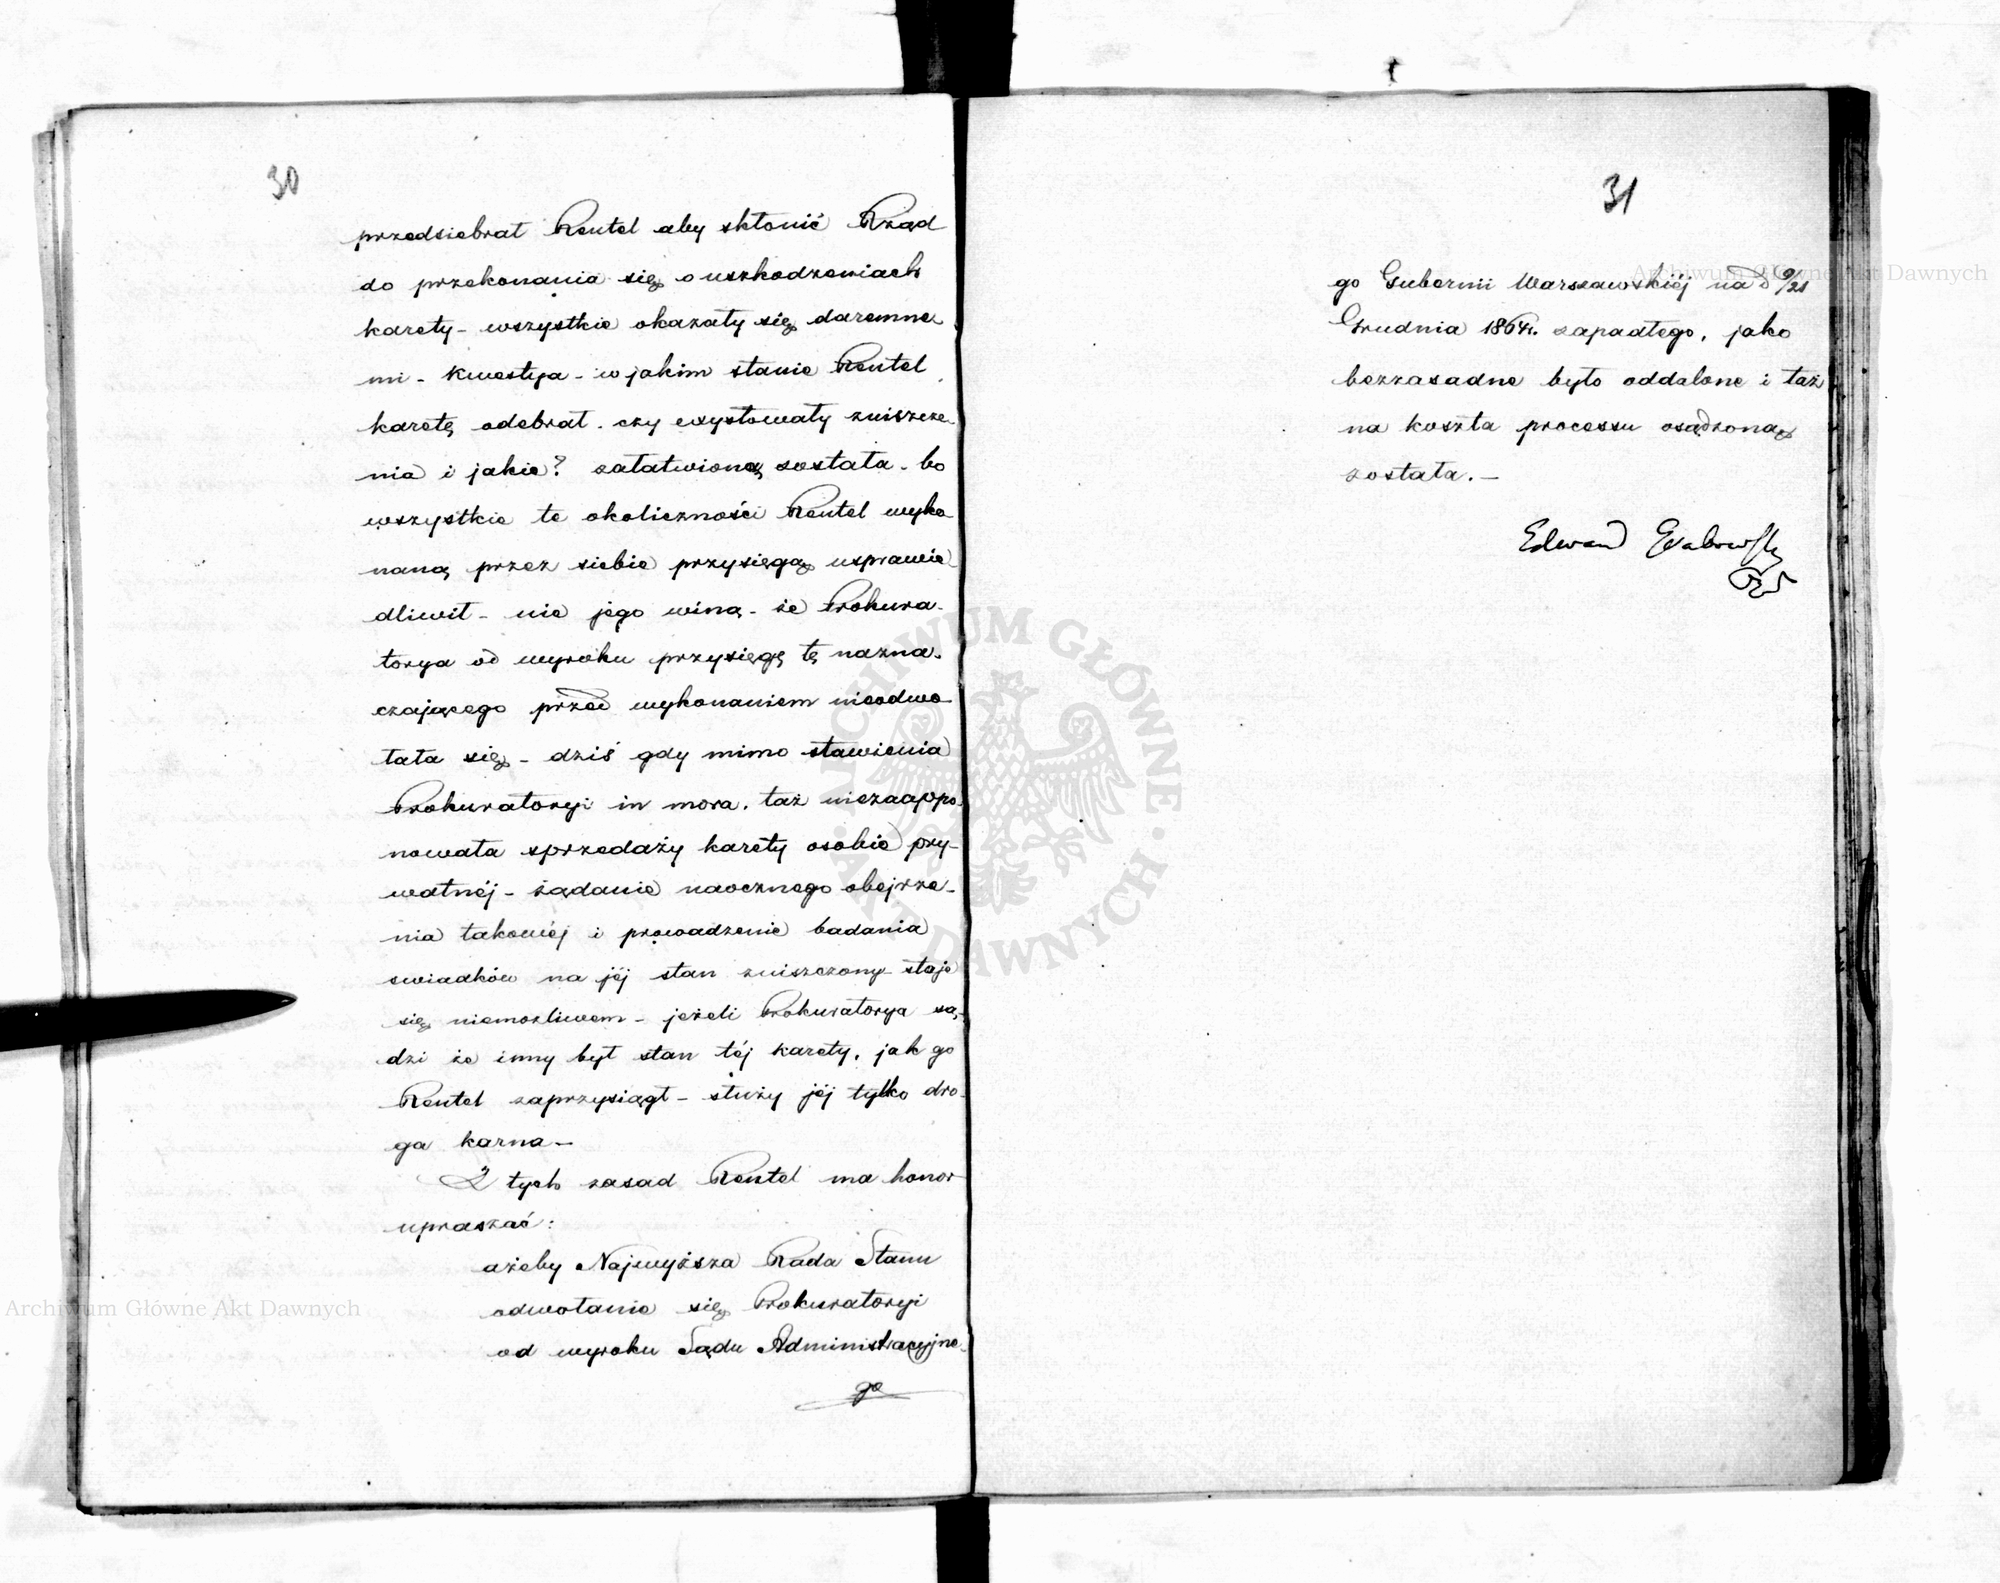 30
przedsiebrał Rentel aby skłonić Rząd
do przekonania się o uszkodzeniach
karety - wszystkie okazały się daremne
mi - kwestya - w jakim stanie Rentel
karetę odebrał. czy exystowały zniszcze-
nia i jakie? załatwioną została - bo
wszystkie te okoliczności Rentel wyko-
naną przez siebie przysięgą usprawie-
dliwił - nie jego winą - że Prokura-
torya od wyroku przysięgę tę nazna-
czającego przed wykonaniem nieodwo-
łała się - dziś gdy mimo stawienia
Prokuratoryi in mora. taż niezaoppo-
nowała sprzedaży karety osobie pry-
watnéj - żądanie naocznego obejrze-
nia takowéj i prowadzenie badania
swiadków na jéj stan zniszczony - staje
się niemożliwem - jeżeli Prokuratorya są-
dzi że inny był stan téj karety, jak go
Rentel zaprzysiągł - służy jéj tylko dro-
ga karna -
Z tych zasad Rentel ma honor
upraszać:
ażeby Najwyższa Rada Stanu
odwołanie się Prokuratoryi
od wyroku Sądu Administracyjne-
go
31
go Gubernii Warszawskiéj na d 9/21
Grudnia 1864r. zapadłego, jako
bezzasadne było oddalone i taż
na koszta processu osądzoną
została. -
Edward Grabowski
Archiwum Główne Akt Dawnych
Archiwum Główne Akt Dawnych
ARCHIWUM GŁÓWNE AKT DAWNYCH